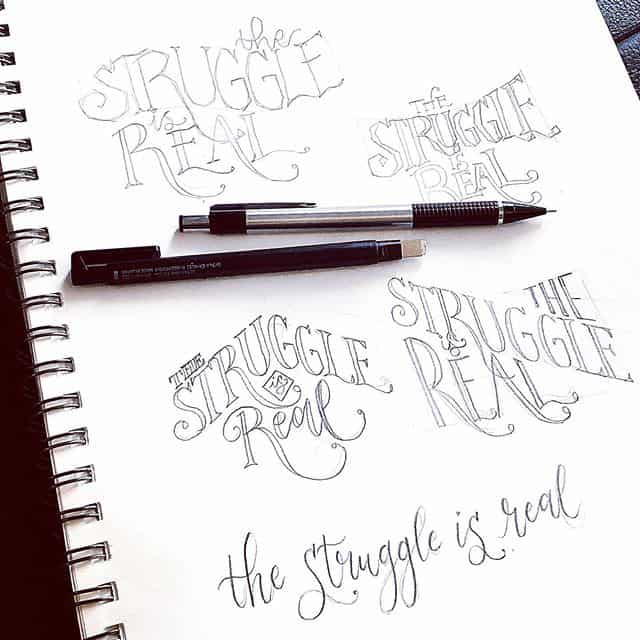 the
STRUGGLE
is
REAL
THE
STRUGGLE
is
REAL
THE
STRUGGLE
is
Real
THE
STRUGGLE
is
REAL
the struggle is real